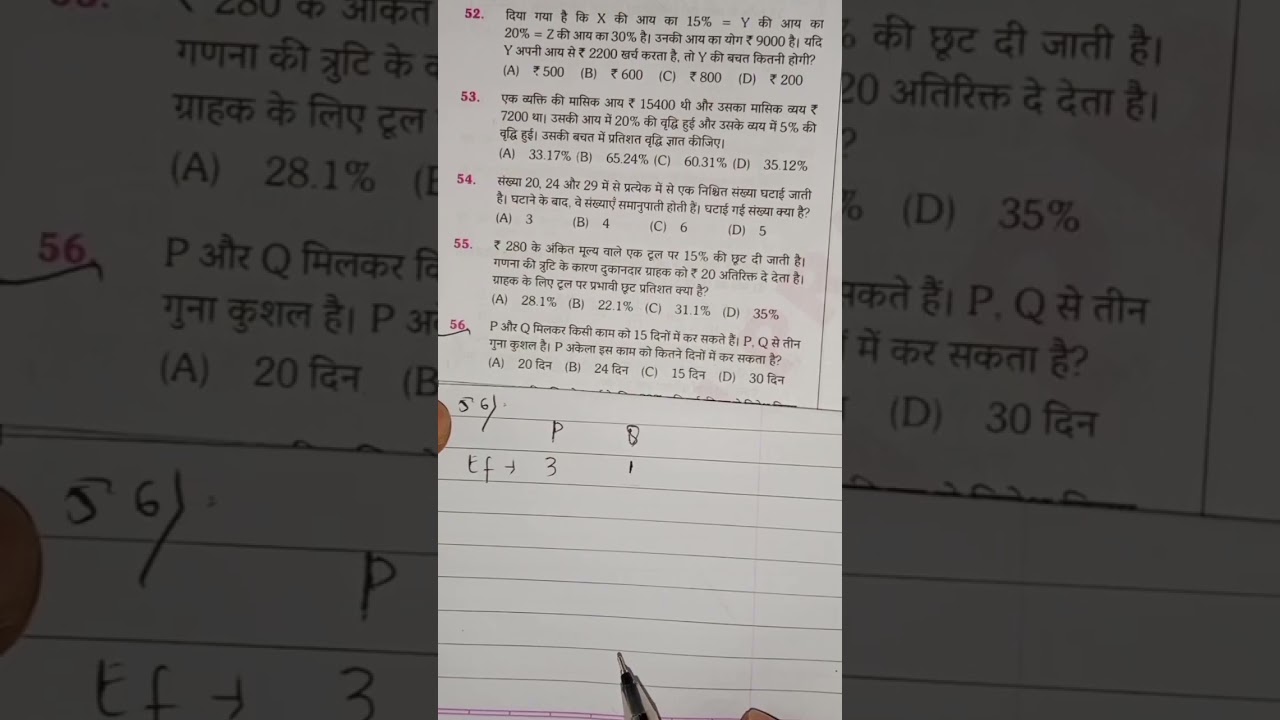 52. दिया गया है कि X की आय का 15% = Y की आय का
20% = Z की आय का 30% है। उनकी आय का योग ₹ 9000 है। यदि
Y अपनी आय से ₹ 2200 खर्च करता है, तो Y की बचत कितनी होगी?
(A) ₹ 500 (B) ₹ 600 (C) ₹ 800 (D) ₹ 200
53. एक व्यक्ति की मासिक आय ₹ 15400 थी और उसका मासिक व्यय ₹
7200 था। उसकी आय में 20% की वृद्धि हुई और उसके व्यय में 5% की
वृद्धि हुई। उसकी बचत में प्रतिशत वृद्धि ज्ञात कीजिए।
(A) 33.17% (B) 65.24% (C) 60.31% (D) 35.12%
54. संख्या 20, 24 और 29 में से प्रत्येक में से एक निश्चित संख्या घटाई जाती
है। घटाने के बाद, वे संख्याएँ समानुपाती होती हैं। घटाई गई संख्या क्या है?
(A) 3 (B) 4 (C) 6 (D) 5
55. ₹ 280 के अंकित मूल्य वाले एक टूल पर 15% की छूट दी जाती है।
गणना की त्रुटि के कारण दुकानदार ग्राहक को ₹ 20 अतिरिक्त दे देता है।
ग्राहक के लिए टूल पर प्रभावी छूट प्रतिशत क्या है?
(A) 28.1% (B) 22.1% (C) 31.1% (D) 35%
56. P और Q मिलकर किसी काम को 15 दिनों में कर सकते हैं। P, Q से तीन
गुना कुशल है। P अकेला इस काम को कितने दिनों में कर सकता है?
(A) 20 दिन (B) 24 दिन (C) 15 दिन (D) 30 दिन
56)
P Q
Ef → 3 1
₹ 280 के अंकित
गणना की त्रुटि के
ग्राहक के लिए टूल
(A) 28.1%
56. P और Q मिलकर
गुना कुशल है। P
(A) 20 दिन (B
56)
P
Ef → 3
% की छूट दी जाती है।
20 अतिरिक्त दे देता है।
?
% (D) 35%
सकते हैं। P, Q से तीन
में कर सकता है?
(D) 30 दिन